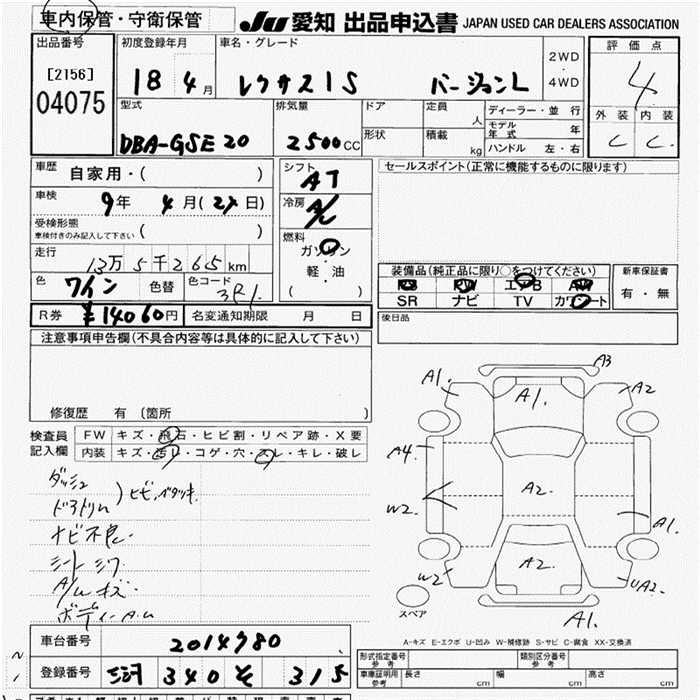 車内保管・守衛保管
JU 愛知 出品申込書 JAPAN USED CAR DEALERS ASSOCIATION
出品番号
[2156]
04075
初度登録年月
18 4 月
車名・グレード
レクサスIS バージョンL
2WD
・
4WD
評価点
4
外装 内装
C C
型式
DBA-GSE20
排気量
2500cc
ドア
形状
定員
人
積載
kg
ディーラー・並行
モデル年式 年
ハンドル 左・右
車歴
自家用・( )
車検
9年 4月(24日)
受検形態
車検付きのみ記入して下さい ( )
走行
13万5千265km
色
ワイン
色替
色コード
3R1
シフト
AT
冷房
A/C
燃料
ガソリン
・
軽・油
( )
セールスポイント(正常に機能するものに限ります)
装備品(純正品に限り○をつけてください)
PS PW エアB AW
SR ナビ TV カワシート
新車保証書
有・無
R券
¥14060円
名変通知期限 月 日
後日品
注意事項申告欄(不具合内容等は具体的に記入して下さい)
修復歴 有(箇所 )
検査員
記入欄
FW キズ・飛石・ヒビ割・リペア跡・X要
内装 キズ・汚レ・コゲ・穴・スレ・キレ・破レ
ダッシュ
ドアトリム
ヒビ、ベタツキ
ナビ不良
シート シワ
A/W キズ
A1. A1. A3 A2
A4
W2 A2. A1.
W2 A2 UA2.
A1.
スペア
A-キズ E-エクボ U-凹み W-補修跡 S-サビ C-腐食 XX-交換済
車台番号
2014780
登録番号
340 そ 315
形式指定番号
参考
類別区分番号
参考
車庫証明用
参考
長さ cm 幅 cm 高さ cm